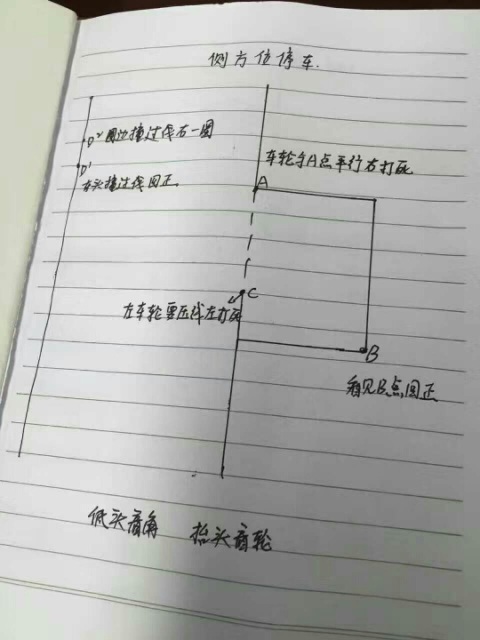 侧方位停车.
D² 圆边撞过线右一圆
D¹
车头撞过线回正
车轮与A点平行右打死
A
C
左车轮要压线左打死
B
看见B点回正
低头看角 抬头看轮